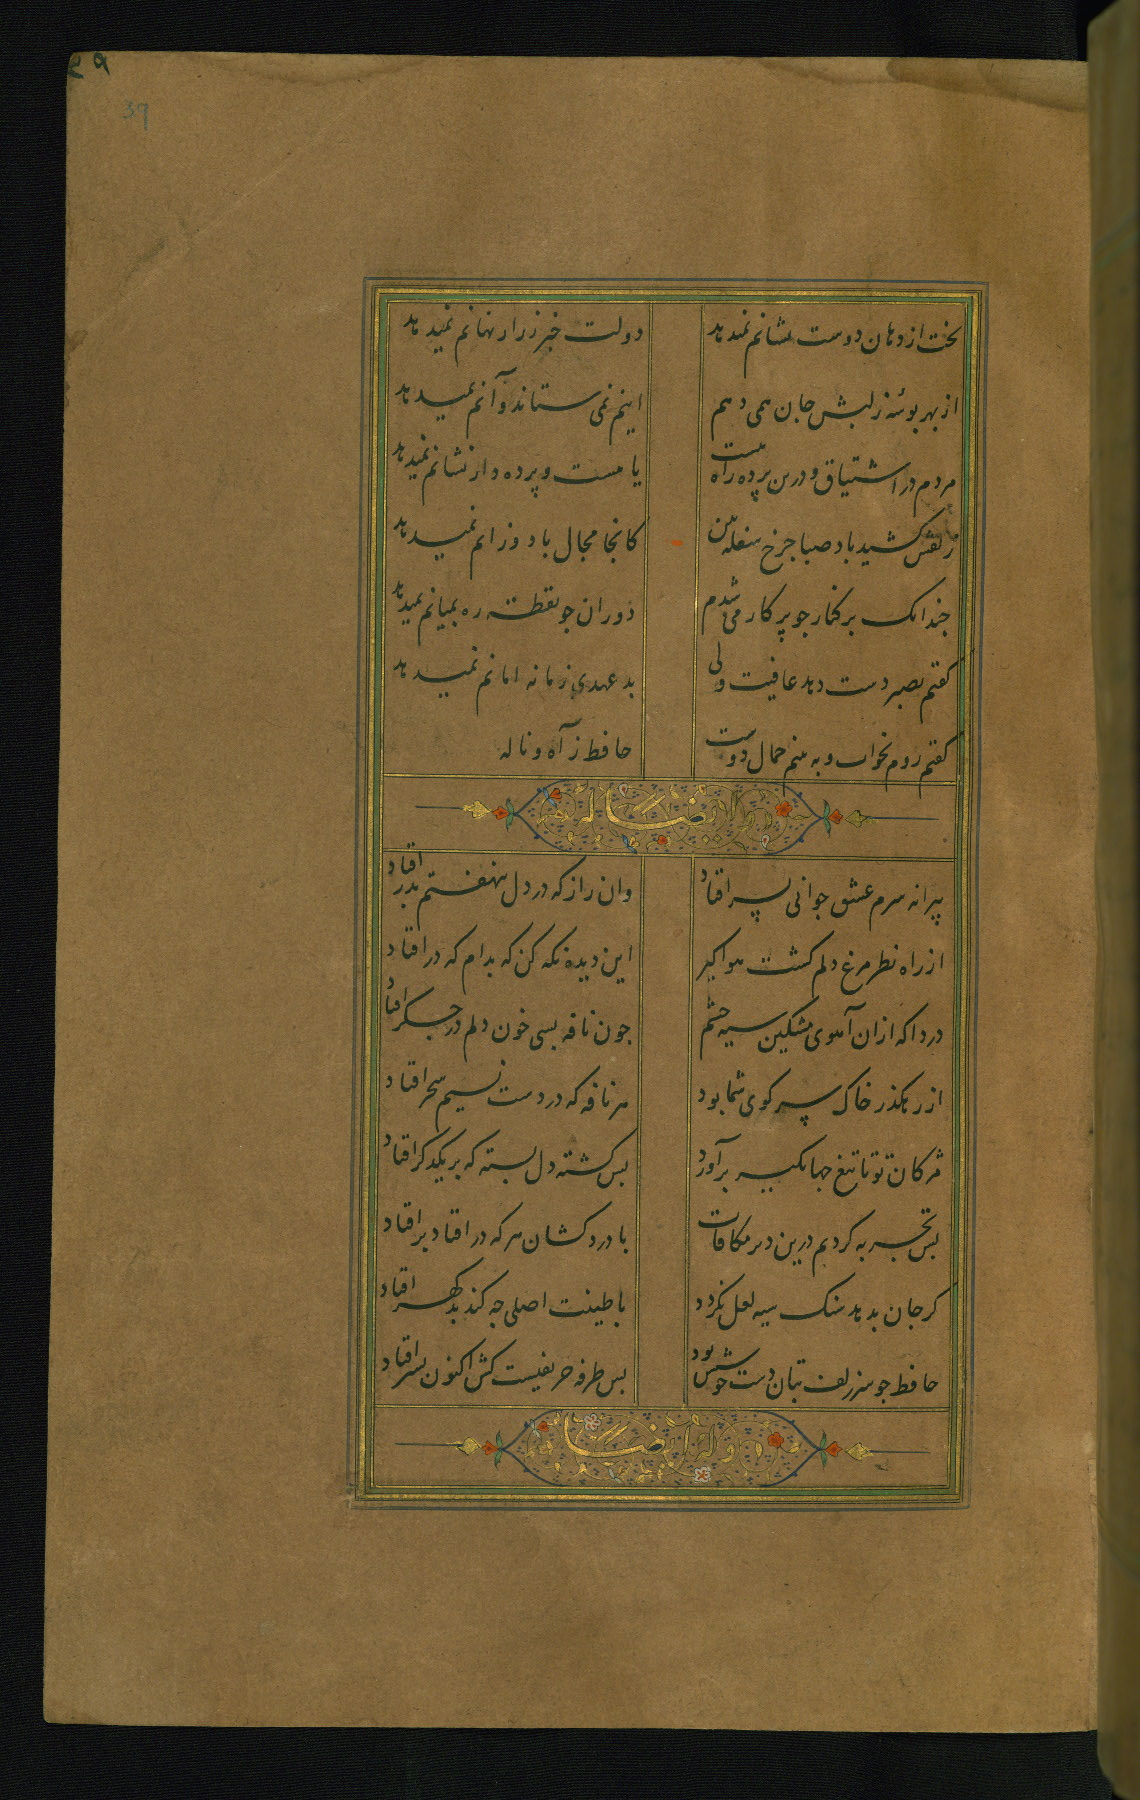 ۵۹
39
بخت از دهان دوست نشانم نمیدهد دولت خبر ز راز نهانم نمیدهد
از بهر بوسه ز لبش جان همی دهم اینم نمی ستاند و آنم نمیدهد
مردم در اشتیاق و درین پرده راه نیست یا هست و پرده دار نشانم نمیدهد
زلفش کشید باد صبا چرخ سفله بین کانجا مجال باد وزانم نمیدهد
چندانک بر کنار چو پرکار می شدم دوران چو نقطه ره بمیانم نمیدهد
گفتم بصبر دست دهد عافیت ولی بد عهدی زمانه امانم نمیدهد
گفتم روم بخواب و به بینم جمال دوست حافظ ز آه و ناله
وله ایضا
پیرانه سرم عشق جوانی بسر افتاد وان راز که در دل بنهفتم بدر افتاد
از راه نظر مرغ دلم گشت هواگیر این دیده نگه کن که بدام که در افتاد
دردا که ازان آهوی مشکین سیه چشم چون نافه بسی خون دلم در جگر افتاد
از رهگذر خاک سر کوی شما بود هر نافه که در دست نسیم سحر افتاد
مژگان تو تا تیغ جهانگیر برآورد بس کشته دل بسته که بر یکدگر افتاد
بس تجربه کردیم درین دیر مکافات با درد کشان هر که در افتاد بر افتاد
گر جان بدهد سنگ سیه لعل نگردد با طینت اصلی چه کند بد گهر افتاد
حافظ چو سر زلف بتان دست خوشش بود بس طرفه حریفیست کش اکنون بسر افتاد
وله ایضا